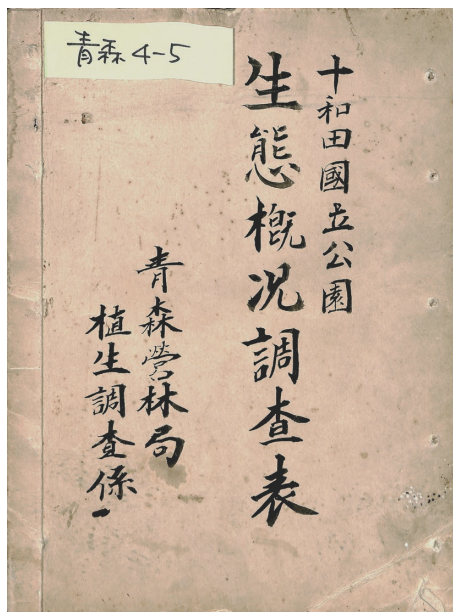 青森4-5
十和田國立公園
生態概況調査表
青森営林局
植生調査係